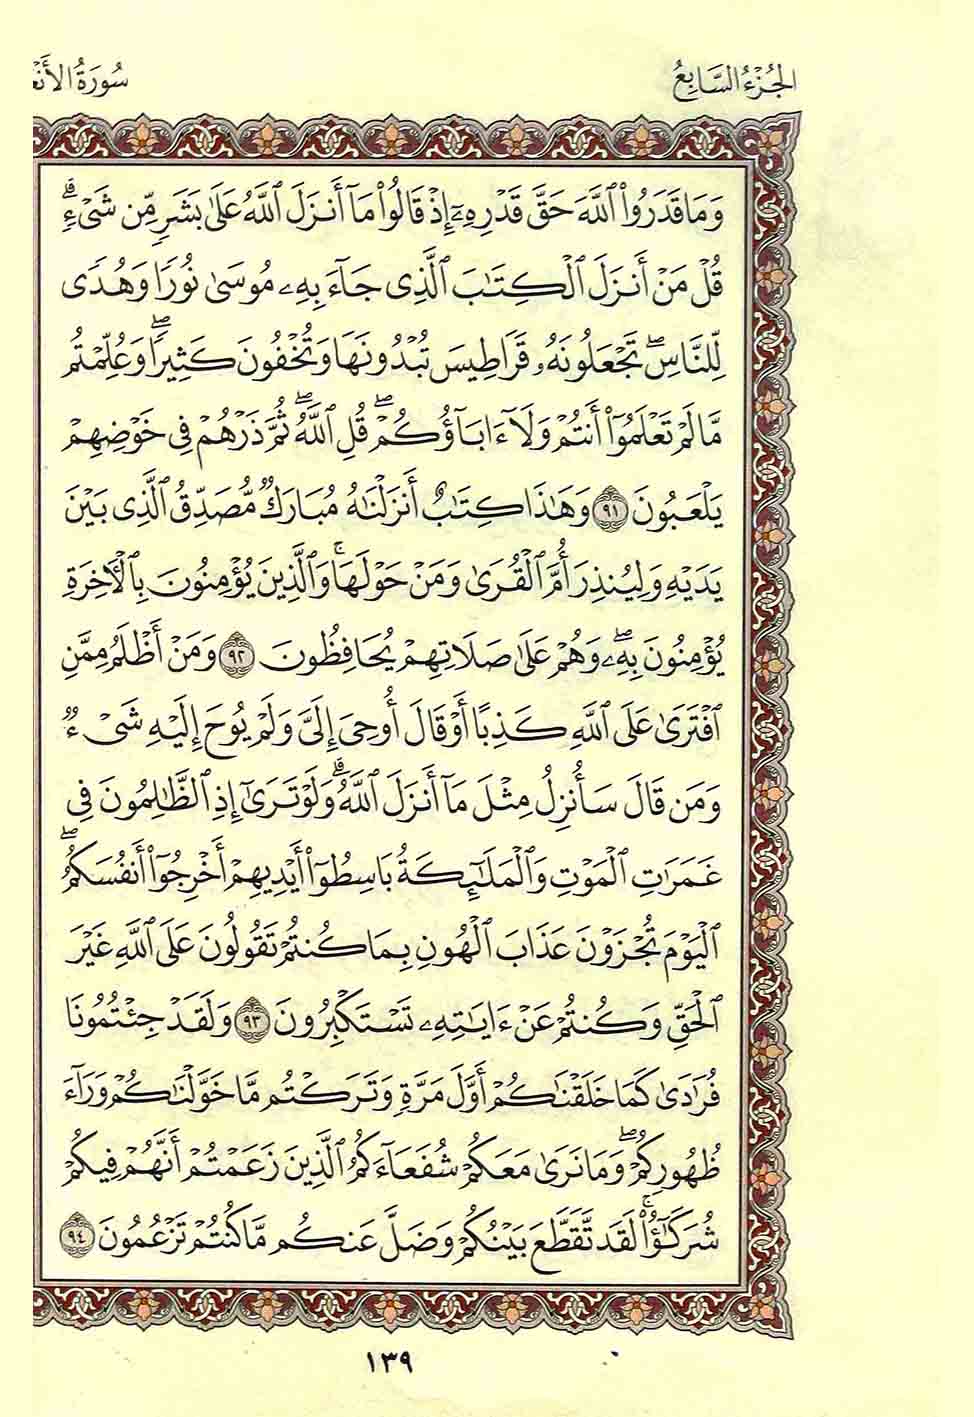 الجُزْءُ السَّابِعُ
سُورَةُ الأَنْعَ
وَمَا قَدَرُوا۟ ٱللَّهَ حَقَّ قَدْرِهِۦٓ إِذْ قَالُوا۟ مَآ أَنزَلَ ٱللَّهُ عَلَىٰ بَشَرٍ مِّن شَىْءٍ ۗ
قُلْ مَنْ أَنزَلَ ٱلْكِتَـٰبَ ٱلَّذِى جَآءَ بِهِۦ مُوسَىٰ نُورًا وَهُدًى
لِّلنَّاسِ ۖ تَجْعَلُونَهُۥ قَرَاطِيسَ تُبْدُونَهَا وَتُخْفُونَ كَثِيرًا ۖ وَعُلِّمْتُم
مَّا لَمْ تَعْلَمُوٓا۟ أَنتُمْ وَلَآ ءَابَآؤُكُمْ ۖ قُلِ ٱللَّهُ ۖ ثُمَّ ذَرْهُمْ فِى خَوْضِهِمْ
يَلْعَبُونَ ٩١ وَهَـٰذَا كِتَـٰبٌ أَنزَلْنَـٰهُ مُبَارَكٌ مُّصَدِّقُ ٱلَّذِى بَيْنَ
يَدَيْهِ وَلِتُنذِرَ أُمَّ ٱلْقُرَىٰ وَمَنْ حَوْلَهَا ۚ وَٱلَّذِينَ يُؤْمِنُونَ بِٱلْـَٔاخِرَةِ
يُؤْمِنُونَ بِهِۦ ۖ وَهُمْ عَلَىٰ صَلَاتِهِمْ يُحَافِظُونَ ٩٢ وَمَنْ أَظْلَمُ مِمَّنِ
ٱفْتَرَىٰ عَلَى ٱللَّهِ كَذِبًا أَوْ قَالَ أُوحِىَ إِلَىَّ وَلَمْ يُوحَ إِلَيْهِ شَىْءٌ
وَمَن قَالَ سَأُنزِلُ مِثْلَ مَآ أَنزَلَ ٱللَّهُ ۗ وَلَوْ تَرَىٰٓ إِذِ ٱلظَّـٰلِمُونَ فِى
غَمَرَٰتِ ٱلْمَوْتِ وَٱلْمَلَـٰٓئِكَةُ بَاسِطُوٓا۟ أَيْدِيهِمْ أَخْرِجُوٓا۟ أَنفُسَكُمُ ۖ
ٱلْيَوْمَ تُجْزَوْنَ عَذَابَ ٱلْهُونِ بِمَا كُنتُمْ تَقُولُونَ عَلَى ٱللَّهِ غَيْرَ
ٱلْحَقِّ وَكُنتُمْ عَنْ ءَايَـٰتِهِۦ تَسْتَكْبِرُونَ ٩٣ وَلَقَدْ جِئْتُمُونَا
فُرَٰدَىٰ كَمَا خَلَقْنَـٰكُمْ أَوَّلَ مَرَّةٍ وَتَرَكْتُم مَّا خَوَّلْنَـٰكُمْ وَرَآءَ
ظُهُورِكُمْ ۖ وَمَا نَرَىٰ مَعَكُمْ شُفَعَآءَكُمُ ٱلَّذِينَ زَعَمْتُمْ أَنَّهُمْ فِيكُمْ
شُرَكَـٰٓؤُا۟ ۚ لَقَد تَّقَطَّعَ بَيْنَكُمْ وَضَلَّ عَنكُم مَّا كُنتُمْ تَزْعُمُونَ ٩٤
١٣٩